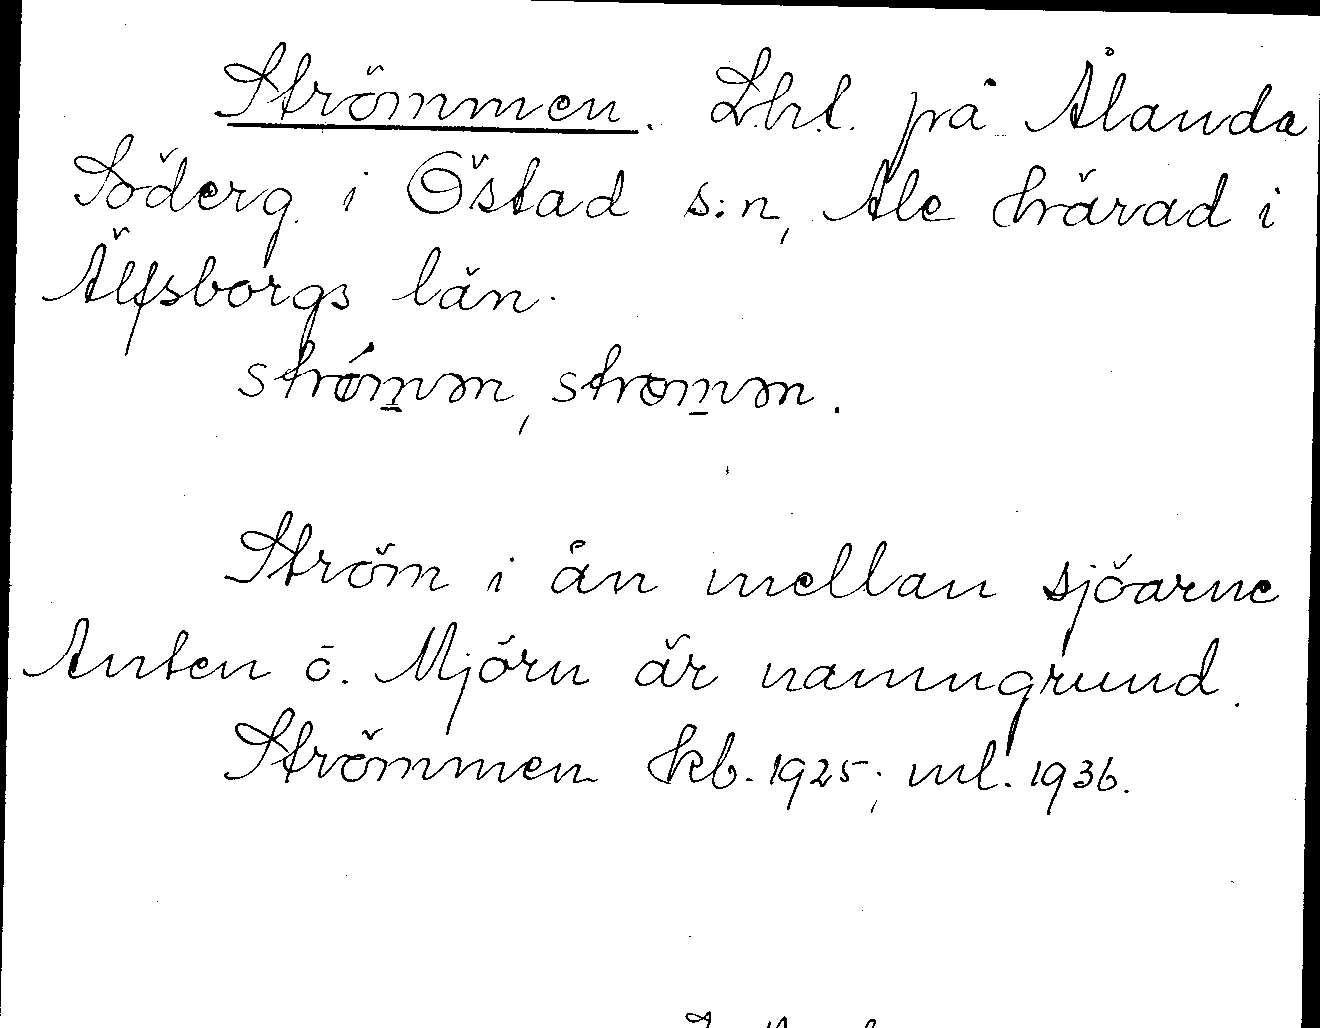 Strömmen. Lht. på Ålanda
Söderg. i Östad s:n, Ale härad i
Älfsborgs län.
strǿm̲ən, strøm̲ən.
Ström i ån mellan sjöarne
Anten o. Mjörn är namngrund.
Strömmen kb. 1925; ml. 1936.